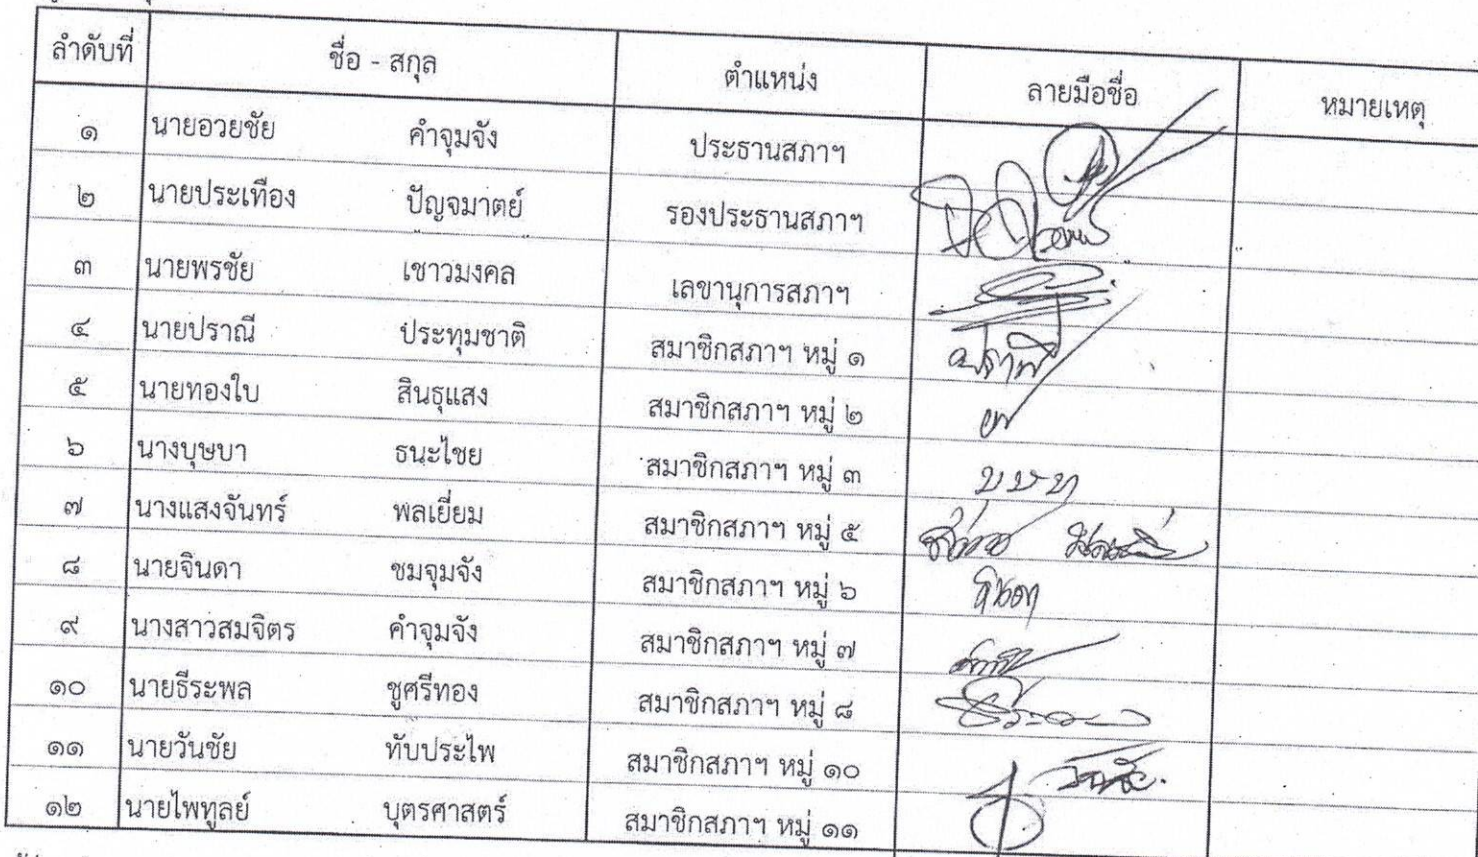 ลำดับที่ ชื่อ - สกุล ตำแหน่ง ลายมือชื่อ หมายเหตุ
๑ นายอวยชัย คำจุมจัง ประธานสภาฯ
๒ นายประเทือง ปัญจมาตย์ รองประธานสภาฯ
๓ นายพรชัย เชาวมงคล เลขานุการสภาฯ
๔ นายปราณี ประทุมชาติ สมาชิกสภาฯ หมู่ ๑
๕ นายทองใบ สินธุแสง สมาชิกสภาฯ หมู่ ๒
๖ นางบุษบา ธนะไชย สมาชิกสภาฯ หมู่ ๓
๗ นางแสงจันทร์ พลเยี่ยม สมาชิกสภาฯ หมู่ ๕
๘ นายจินดา ชมจุมจัง สมาชิกสภาฯ หมู่ ๖ จินดา
๙ นางสาวสมจิตร คำจุมจัง สมาชิกสภาฯ หมู่ ๗
๑๐ นายธีระพล ชูศรีทอง สมาชิกสภาฯ หมู่ ๘
๑๑ นายวันชัย ทับประไพ สมาชิกสภาฯ หมู่ ๑๐ วันชัย
๑๒ นายไพทูลย์ บุตรศาสตร์ สมาชิกสภาฯ หมู่ ๑๑